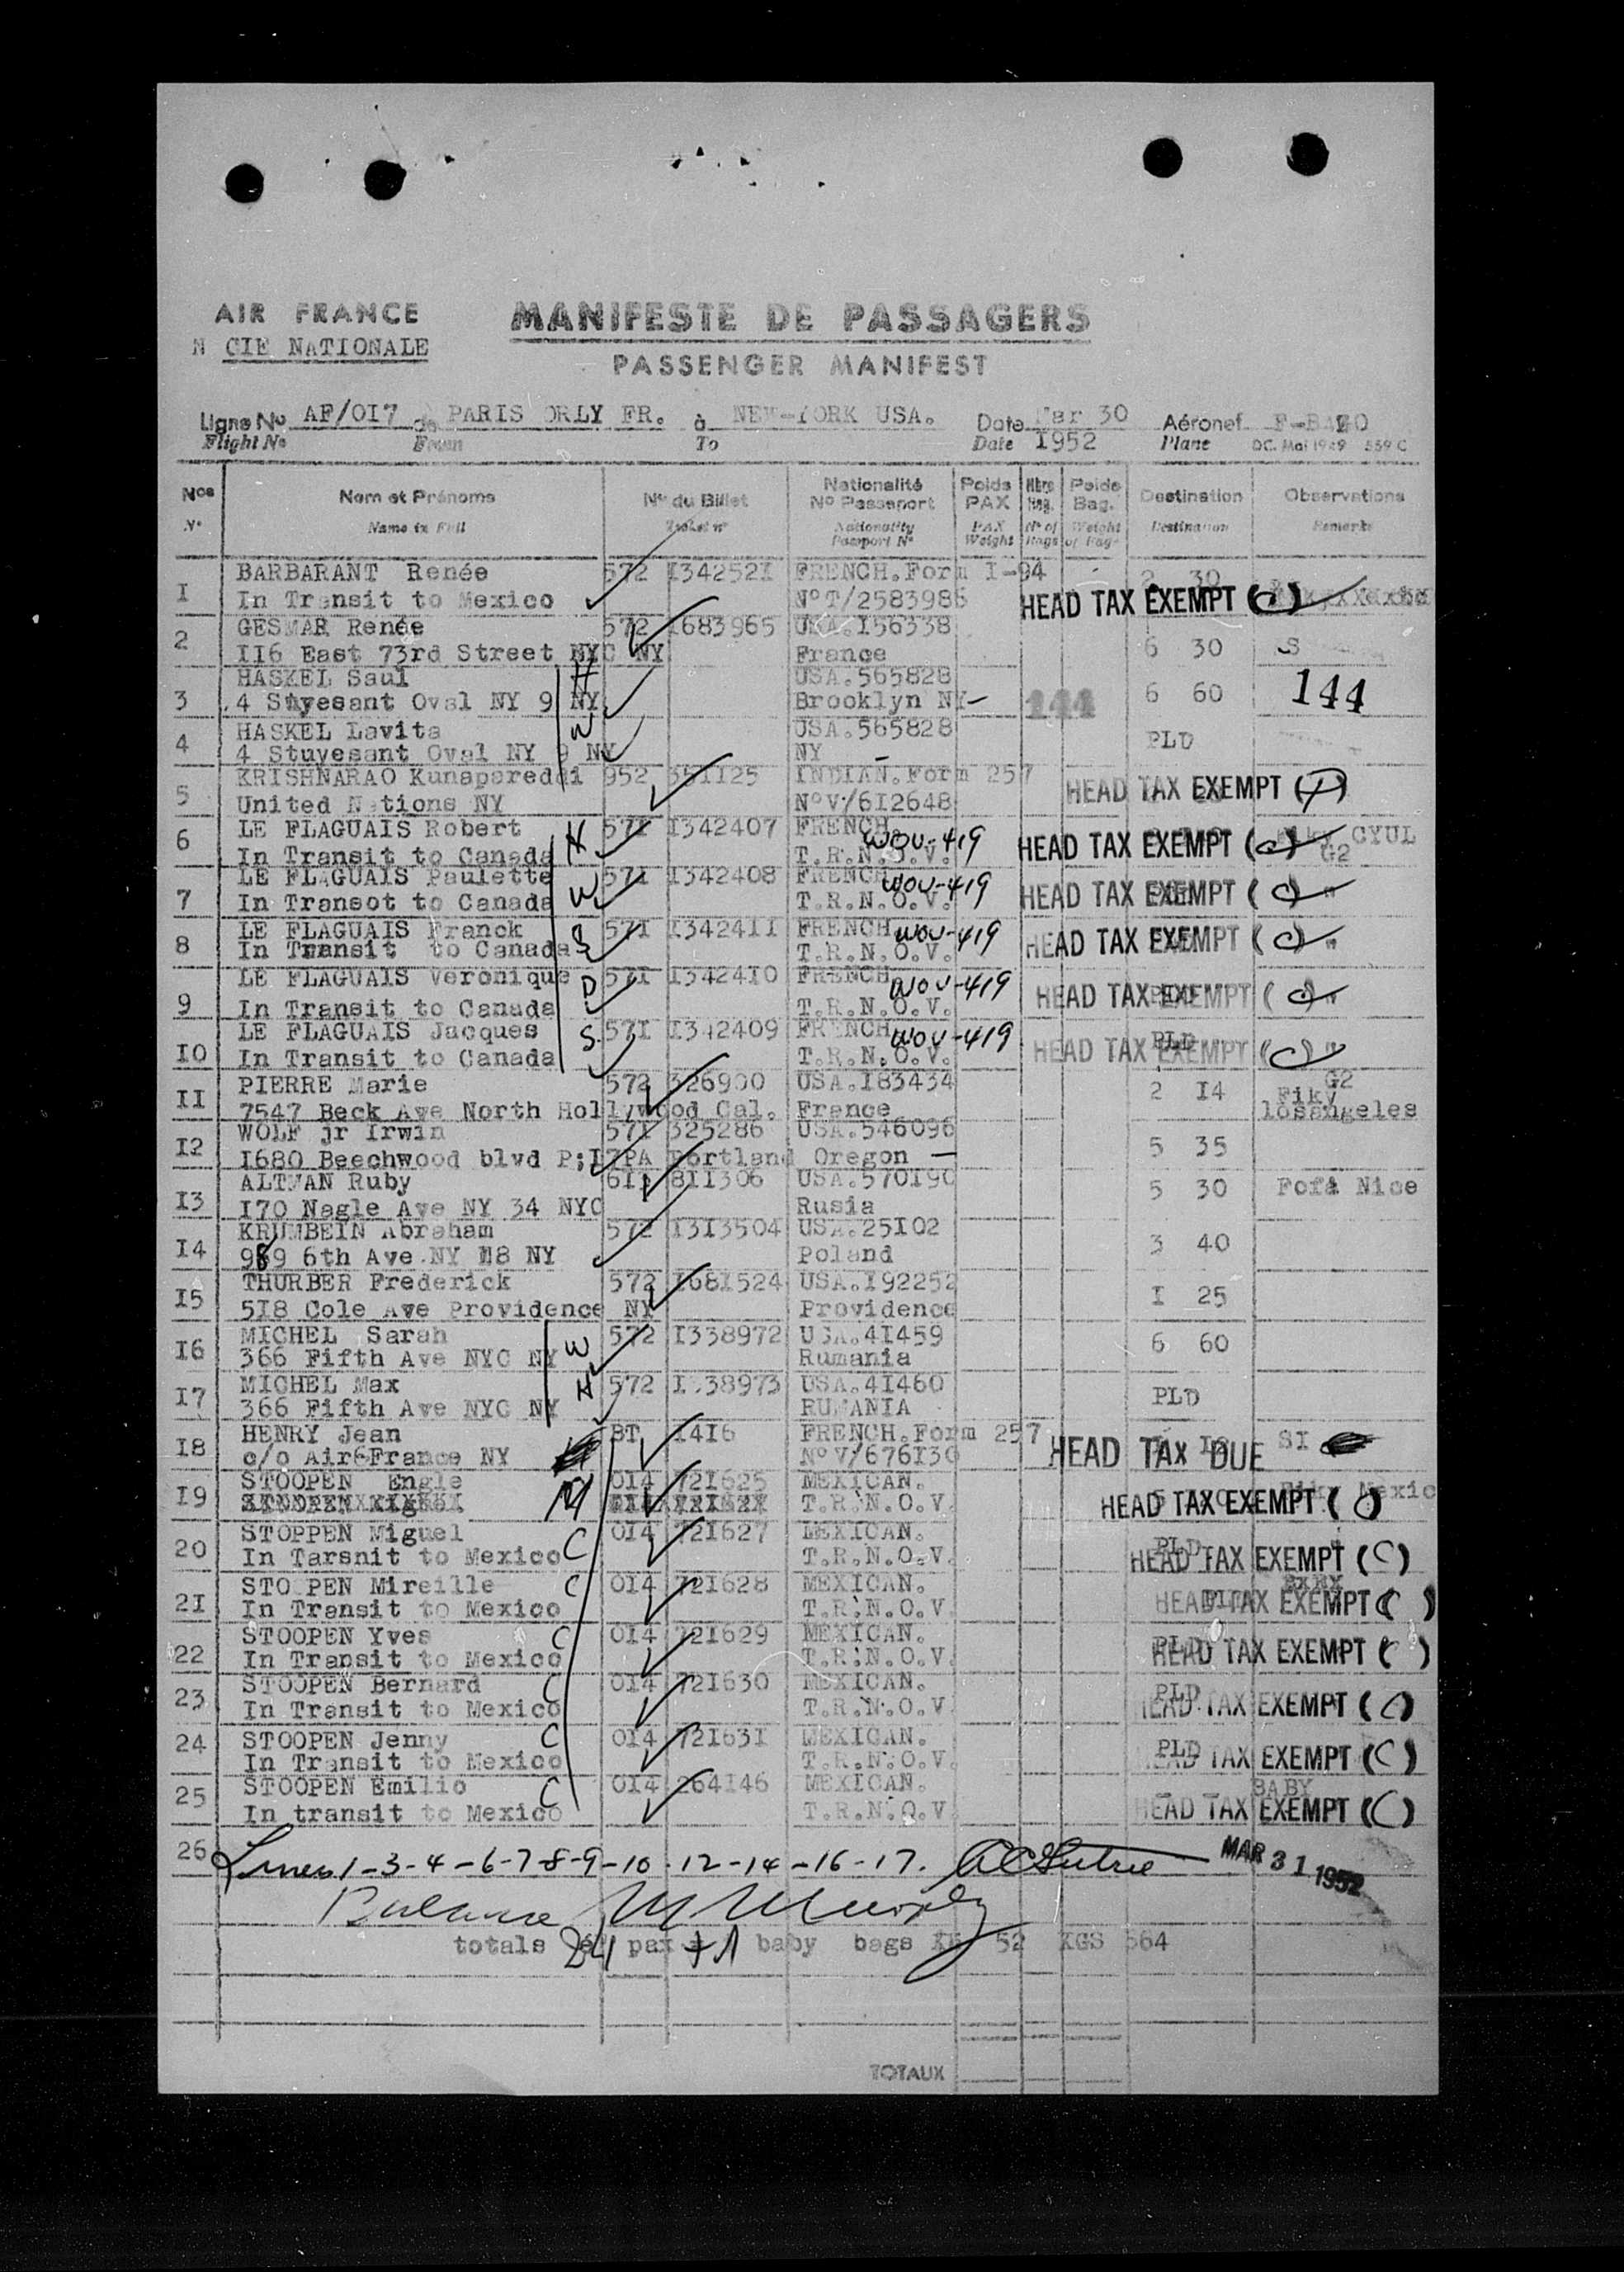 AIR FRANCE
MANIFESTE DE PASSAGERS
N CIE NATIONALE
PASSENGER MANIFEST
Ligne No AF/OI7 de PARIS ORLY FR. à NEW-YORK USA. Date Mar 30 Aéronef
Flight No From To Date I952 Plane DC. Mai 1949 559 C
Nos Nom et Prénoms No du Billet Nationalité No Passeport Poids PAX Nbre Bag. Poids Bag. Destination Observations
No Name in Full Ticket no Nationality Passport No PAX Weight No of Bags Weight of Bags Destination Remarks
I BARBARANT Renée 572 I34252I FRENCH.Form I-94 2 30
In Transit to Mexico NoT/2583986 HEAD TAX EXEMPT (C)
2 GESMAR Renée 572 I683965 USA.I56338
II6 East 73rd Street NYC NY France 6 30 S
3 HASKEL Saul H USA.565828
4 Stuyesant Oval NY 9 NY Brooklyn NY- 144 6 60 144
4 HASKEL Lavita W USA.565828 PLD
4 Stuyvesant Oval NY 9 NY NY
5 KRISHNARAO Kunapareddi 952 35II25 INDIAN.Form 257
United Nations NY NoV/6I2648 HEAD TAX EXEMPT
6 LE FLAGUAIS Robert H 57I I342407 FRENCH WOV-419 CYUL
In Transit to Canada T.R.N.O.V. HEAD TAX EXEMPT (C) G2
7 LE FLAGUAIS Paulette W 57I I342408 FRENCH WOV-419
In Transot to Canada T.R.N.O.V. HEAD TAX EXEMPT (C) "
8 LE FLAGUAIS Franck S 57I I3424II FRENCH WOV-419
In Transit to Canada T.R.N.O.V. HEAD TAX EXEMPT (C) "
9 LE FLAGUAIS Veronique D 57I I3424I0 FRENCH WOV-419
In Transit to Canada T.R.N.O.V. HEAD TAX EXEMPT (C) "
IO LE FLAGUAIS Jacques S. 57I I342409 FRENCH WOV-419 PLD
In Transit to Canada T.R.N.O.V. HEAD TAX EXEMPT (C) "
II PIERRE Marie 572 326900 USA.I83434 2 I4 Fiky G2
7547 Beck Ave North Hollywood Cal. France losangeles
I2 WOLF jr Irwin 57I 325286 USA.546096 5 35
I680 Beechwood blvd Portland Oregon
I3 ALTMAN Ruby 8II306 USA.570I90 5 30 Fofa Nice
I70 Nagle Ave NY 34 NYC Rusia
I4 KRUMBEIN Abraham 572 I3I3504 USA.25I02 3 40
989 6th Ave NY I8 NY Poland
I5 THURBER Frederick 572 I68I524 USA.I92252 I 25
5I8 Cole Ave Providence NY Providence
I6 MICHEL Sarah W 572 I338972 USA.4I459 6 60
366 Fifth Ave NYC NY Rumania
I7 MICHEL Max H 572 I338973 USA.4I460 PLD
366 Fifth Ave NYC NY RUMANIA
I8 HENRY Jean BT I4I6 FRENCH.Form 257 SI
c/o Air&France NY NoV/676I30 HEAD TAX DUE
I9 STOOPEN Engle M 0I4 72I625 MEXICAN.
T.R.N.O.V. HEAD TAX EXEMPT ( )
20 STOPPEN Miguel C 0I4 72I627 MEXICAN. PLD
In Tarsnit to Mexico T.R.N.O.V. HEAD TAX EXEMPT (C)
2I STOOPEN Mireille C 0I4 72I628 MEXICAN.
In Transit to Mexico T.R.N.O.V. HEAD TAX EXEMPT (C)
22 STOOPEN Yves C 0I4 72I629 MEXICAN. PLD
In Transit to Mexico T.R.N.O.V. HEAD TAX EXEMPT (C)
23 STOOPEN Bernard C 0I4 72I630 MEXICAN. PLD
In Transit to Mexico T.R.N.O.V. HEAD TAX EXEMPT (C)
24 STOOPEN Jenny C 0I4 72I63I MEXICAN. PLD
In Transit to Mexico T.R.N.O.V. HEAD TAX EXEMPT (C)
25 STOOPEN Emilio C 0I4 264I46 MEXICAN. BABY
In transit to Mexico T.R.N.O.V. HEAD TAX EXEMPT (C)
26 Lines 1-3-4-6-7-8-9-10-12-14-16-17. MAR 31 1952
Balance M Murphy
totals 24 pax +1 baby bags 52 KGS 564
TOTAUX